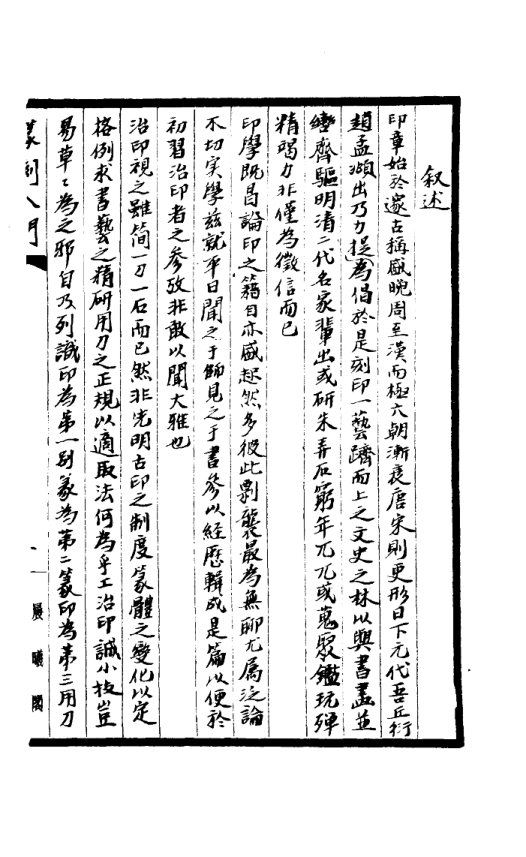 叙述
印章始於邃古稱盛晚周至漢而極六朝漸衰唐宋則更形日下元代吾丘衍
趙孟頫出乃力提為倡於是刻印一藝躋而上之文史之林以與書畫並
轡齊驅明清二代名家輩出或研朱弄石窮年兀兀或蒐聚鑑玩殫
精竭力非僅為徵信而已
印學既昌論印之籍自亦盛起然多彼此剽襲最為無聊尤属泛論
不切实學兹就平日聞之于師見之于書參以經歷輯成是篇以便於
初習治印者之參攷非敢以聞大雅也
治印視之雖简一刀一石而已然非先明古印之制度篆體之變化以定
格例求書藝之精研用刀之正規以適取法何為乎工治印誠小技豈
易草〻為之邪自乃列識印為第一別篆為第二篆印為第三用刀
篆刻入門
一
晨曦閣